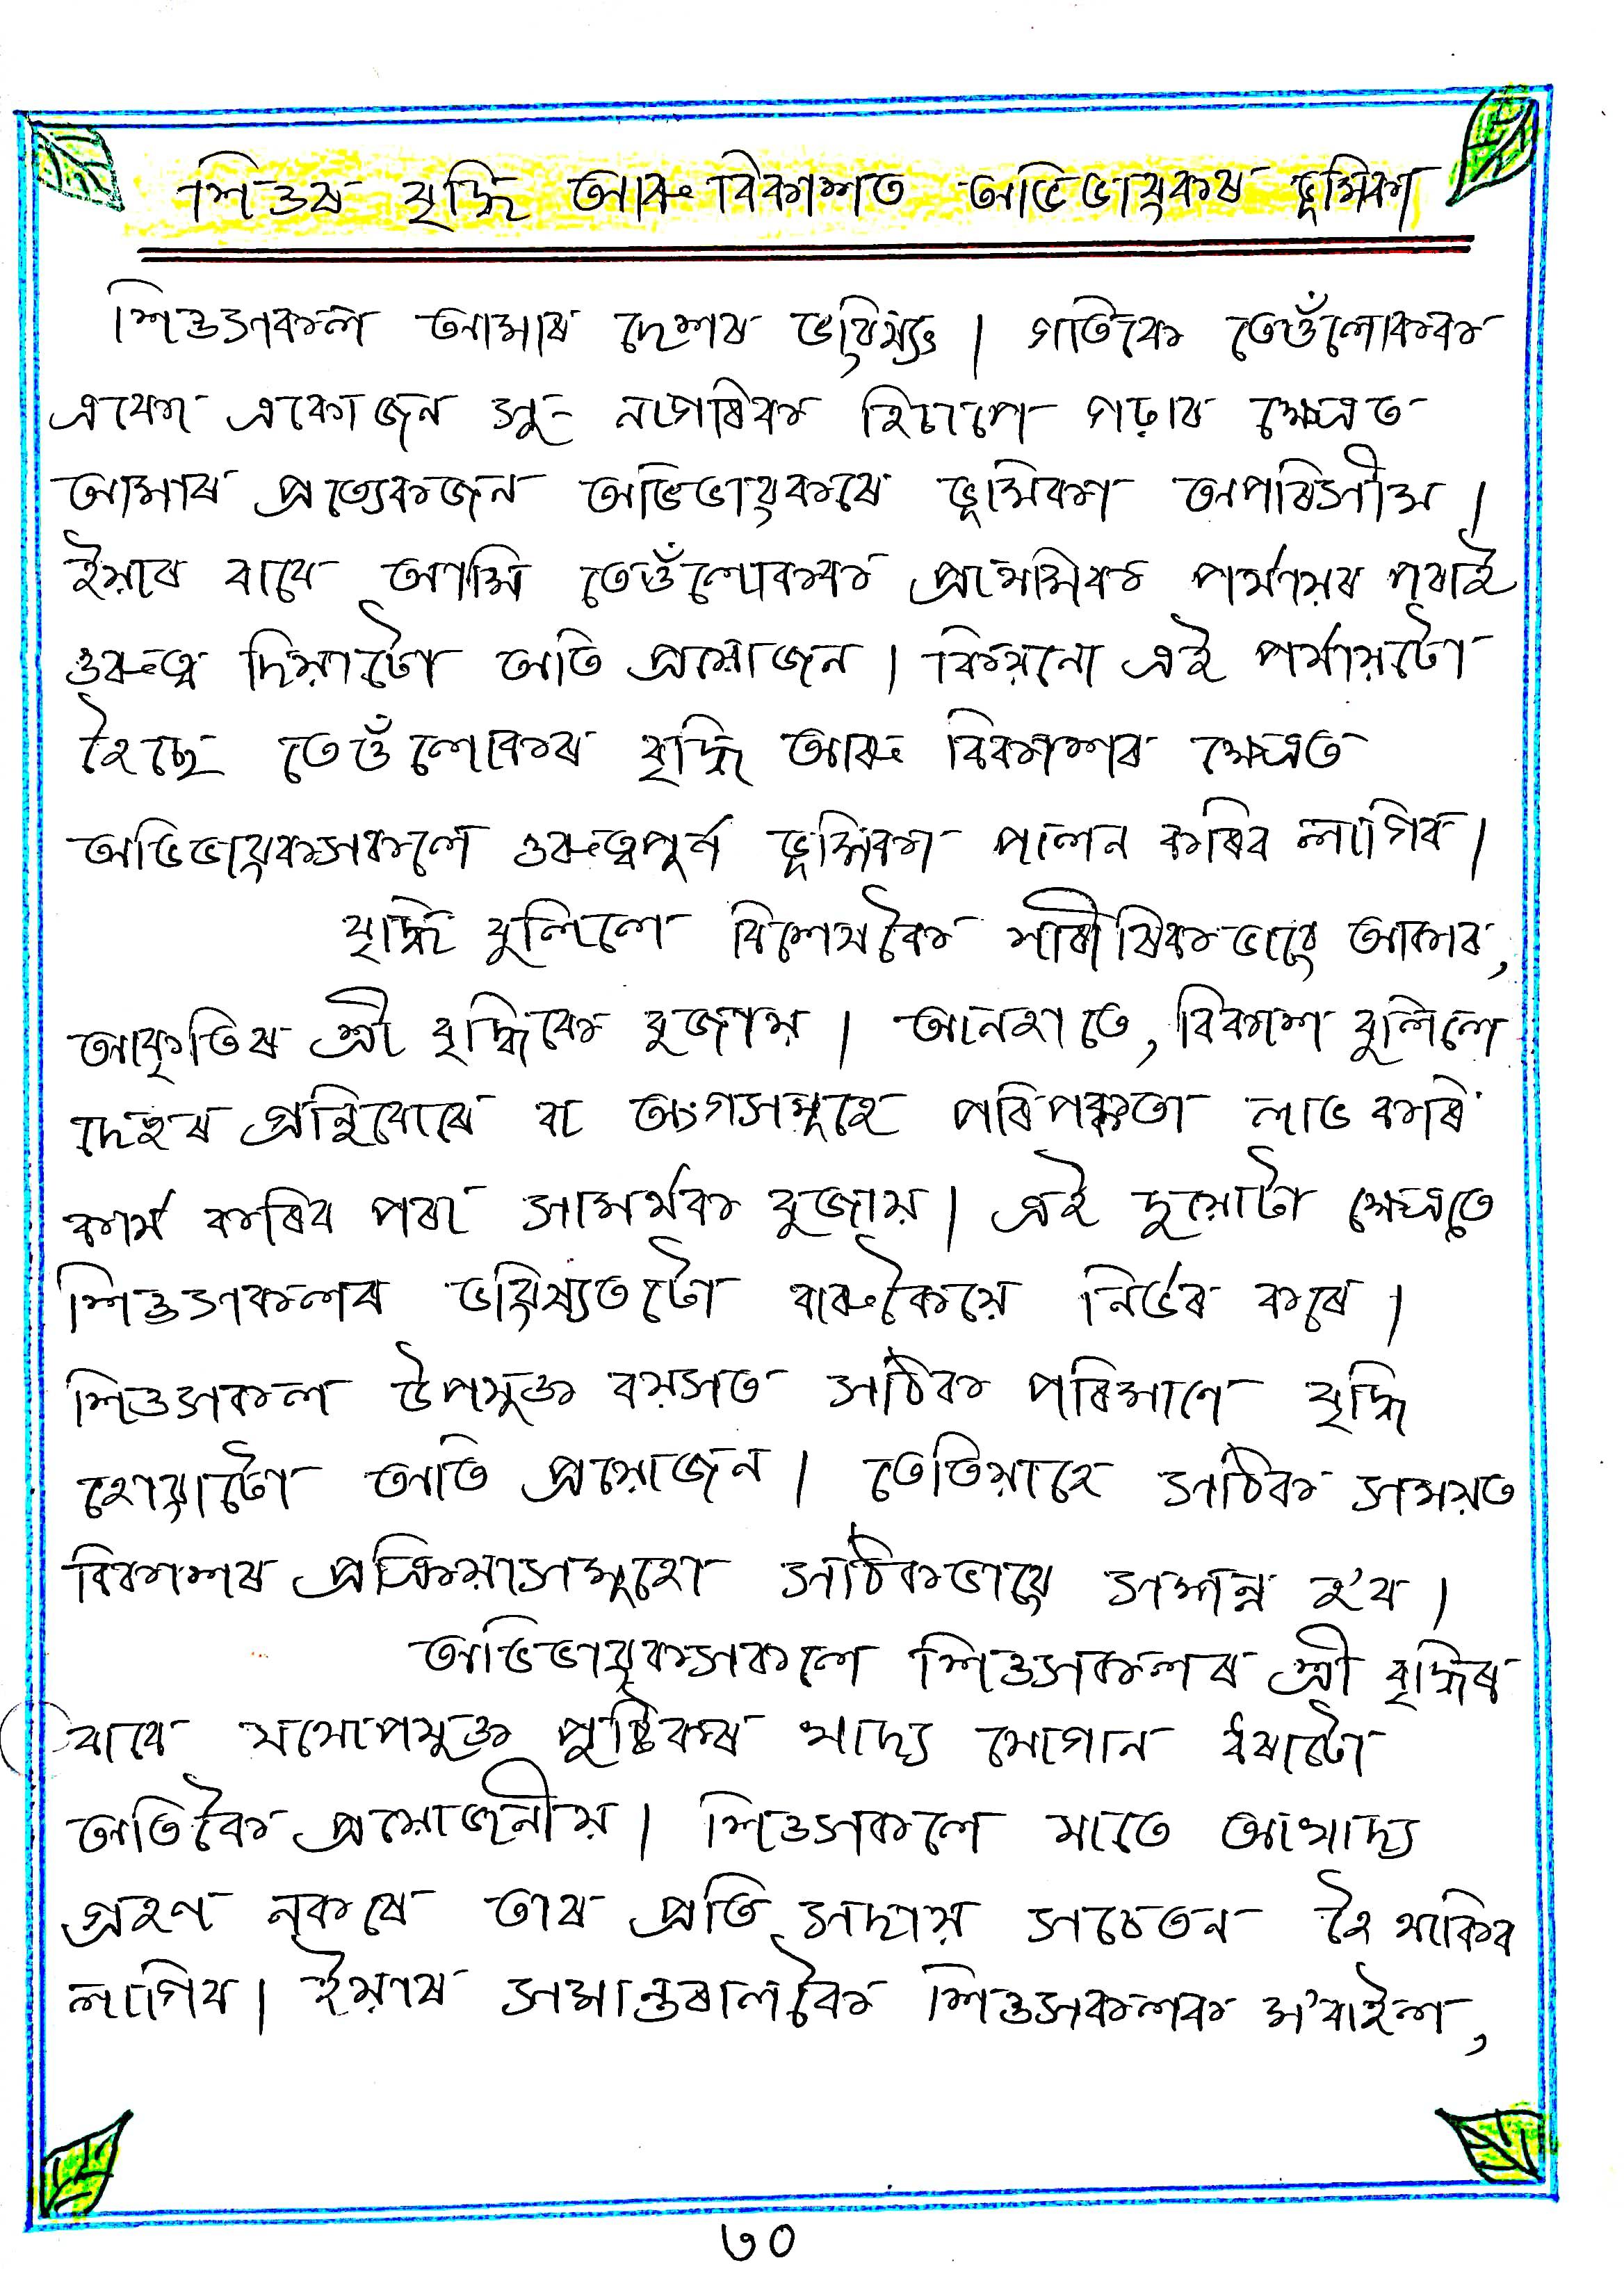 শিশুৰ বৃদ্ধি আৰু বিকাশত অভিভাৱকৰ ভূমিকা
শিশুসকল আমাৰ দেশৰ ভৱিষ্যৎ। গতিকে তেওঁলোকক
একো একোজন সু- নাগৰিক হিচাপে গঢ়াৰ ক্ষেত্ৰত
আমাৰ প্ৰত্যেকজন অভিভাৱকৰে ভূমিকা অপৰিসীম।
ইয়াৰ বাবে আমি তেওঁলোকক প্ৰাথমিক পৰ্যায়ৰ পৰাই
গুৰুত্ব দিয়াটো অতি প্ৰয়োজন। কিয়নো এই পৰ্যায়টো
হৈছে তেওঁলোকৰ বৃদ্ধি আৰু বিকাশৰ ক্ষেত্ৰত
অভিভাৱকসকলে গুৰুত্বপূৰ্ন ভূমিকা পালন কৰিব লাগিব।
বৃদ্ধি বুলিলে বিশেষকৈ শাৰীৰিকভাৱে আকাৰ,
আকৃতিৰ শ্ৰী বৃদ্ধিকে বুজায়। আনহাতে, বিকাশ বুলিলে
দেহৰ গ্ৰন্থিবোৰে বা অংগসমূহে পৰিপক্কতা লাভ কৰি
কাৰ্য কৰিব পৰা সামৰ্থক বুজায়। এই দুয়োটা ক্ষেত্ৰতে
শিশুসকলৰ ভৱিষ্যতটো বাৰুকৈয়ে নিৰ্ভৰ কৰে।
শিশুসকল উপযুক্ত বয়সত সঠিক পৰিমাণে বৃদ্ধি
হোৱাটো অতি প্ৰয়োজন। তেতিয়াহে সঠিক সময়ত
বিকাশৰ প্ৰক্ৰিয়াসমূহো সঠিকভাৱে সম্পন্ন হ'ব।
অভিভাৱকসকলে শিশুসকলৰ শ্ৰী বৃদ্ধিৰ
বাবে যথোপযুক্ত পুষ্টিকৰ খাদ্য যোগান ধৰাটো
অতিকৈ প্ৰয়োজনীয়। শিশুসকলে যাতে আখাদ্য
গ্ৰহণ নকৰে তাৰ প্ৰতি সদায় সচেতন হৈ থাকিব
লাগিব। ইয়াৰ সমান্তৰালকৈ শিশুসকলক ম'বাইল,
৩০